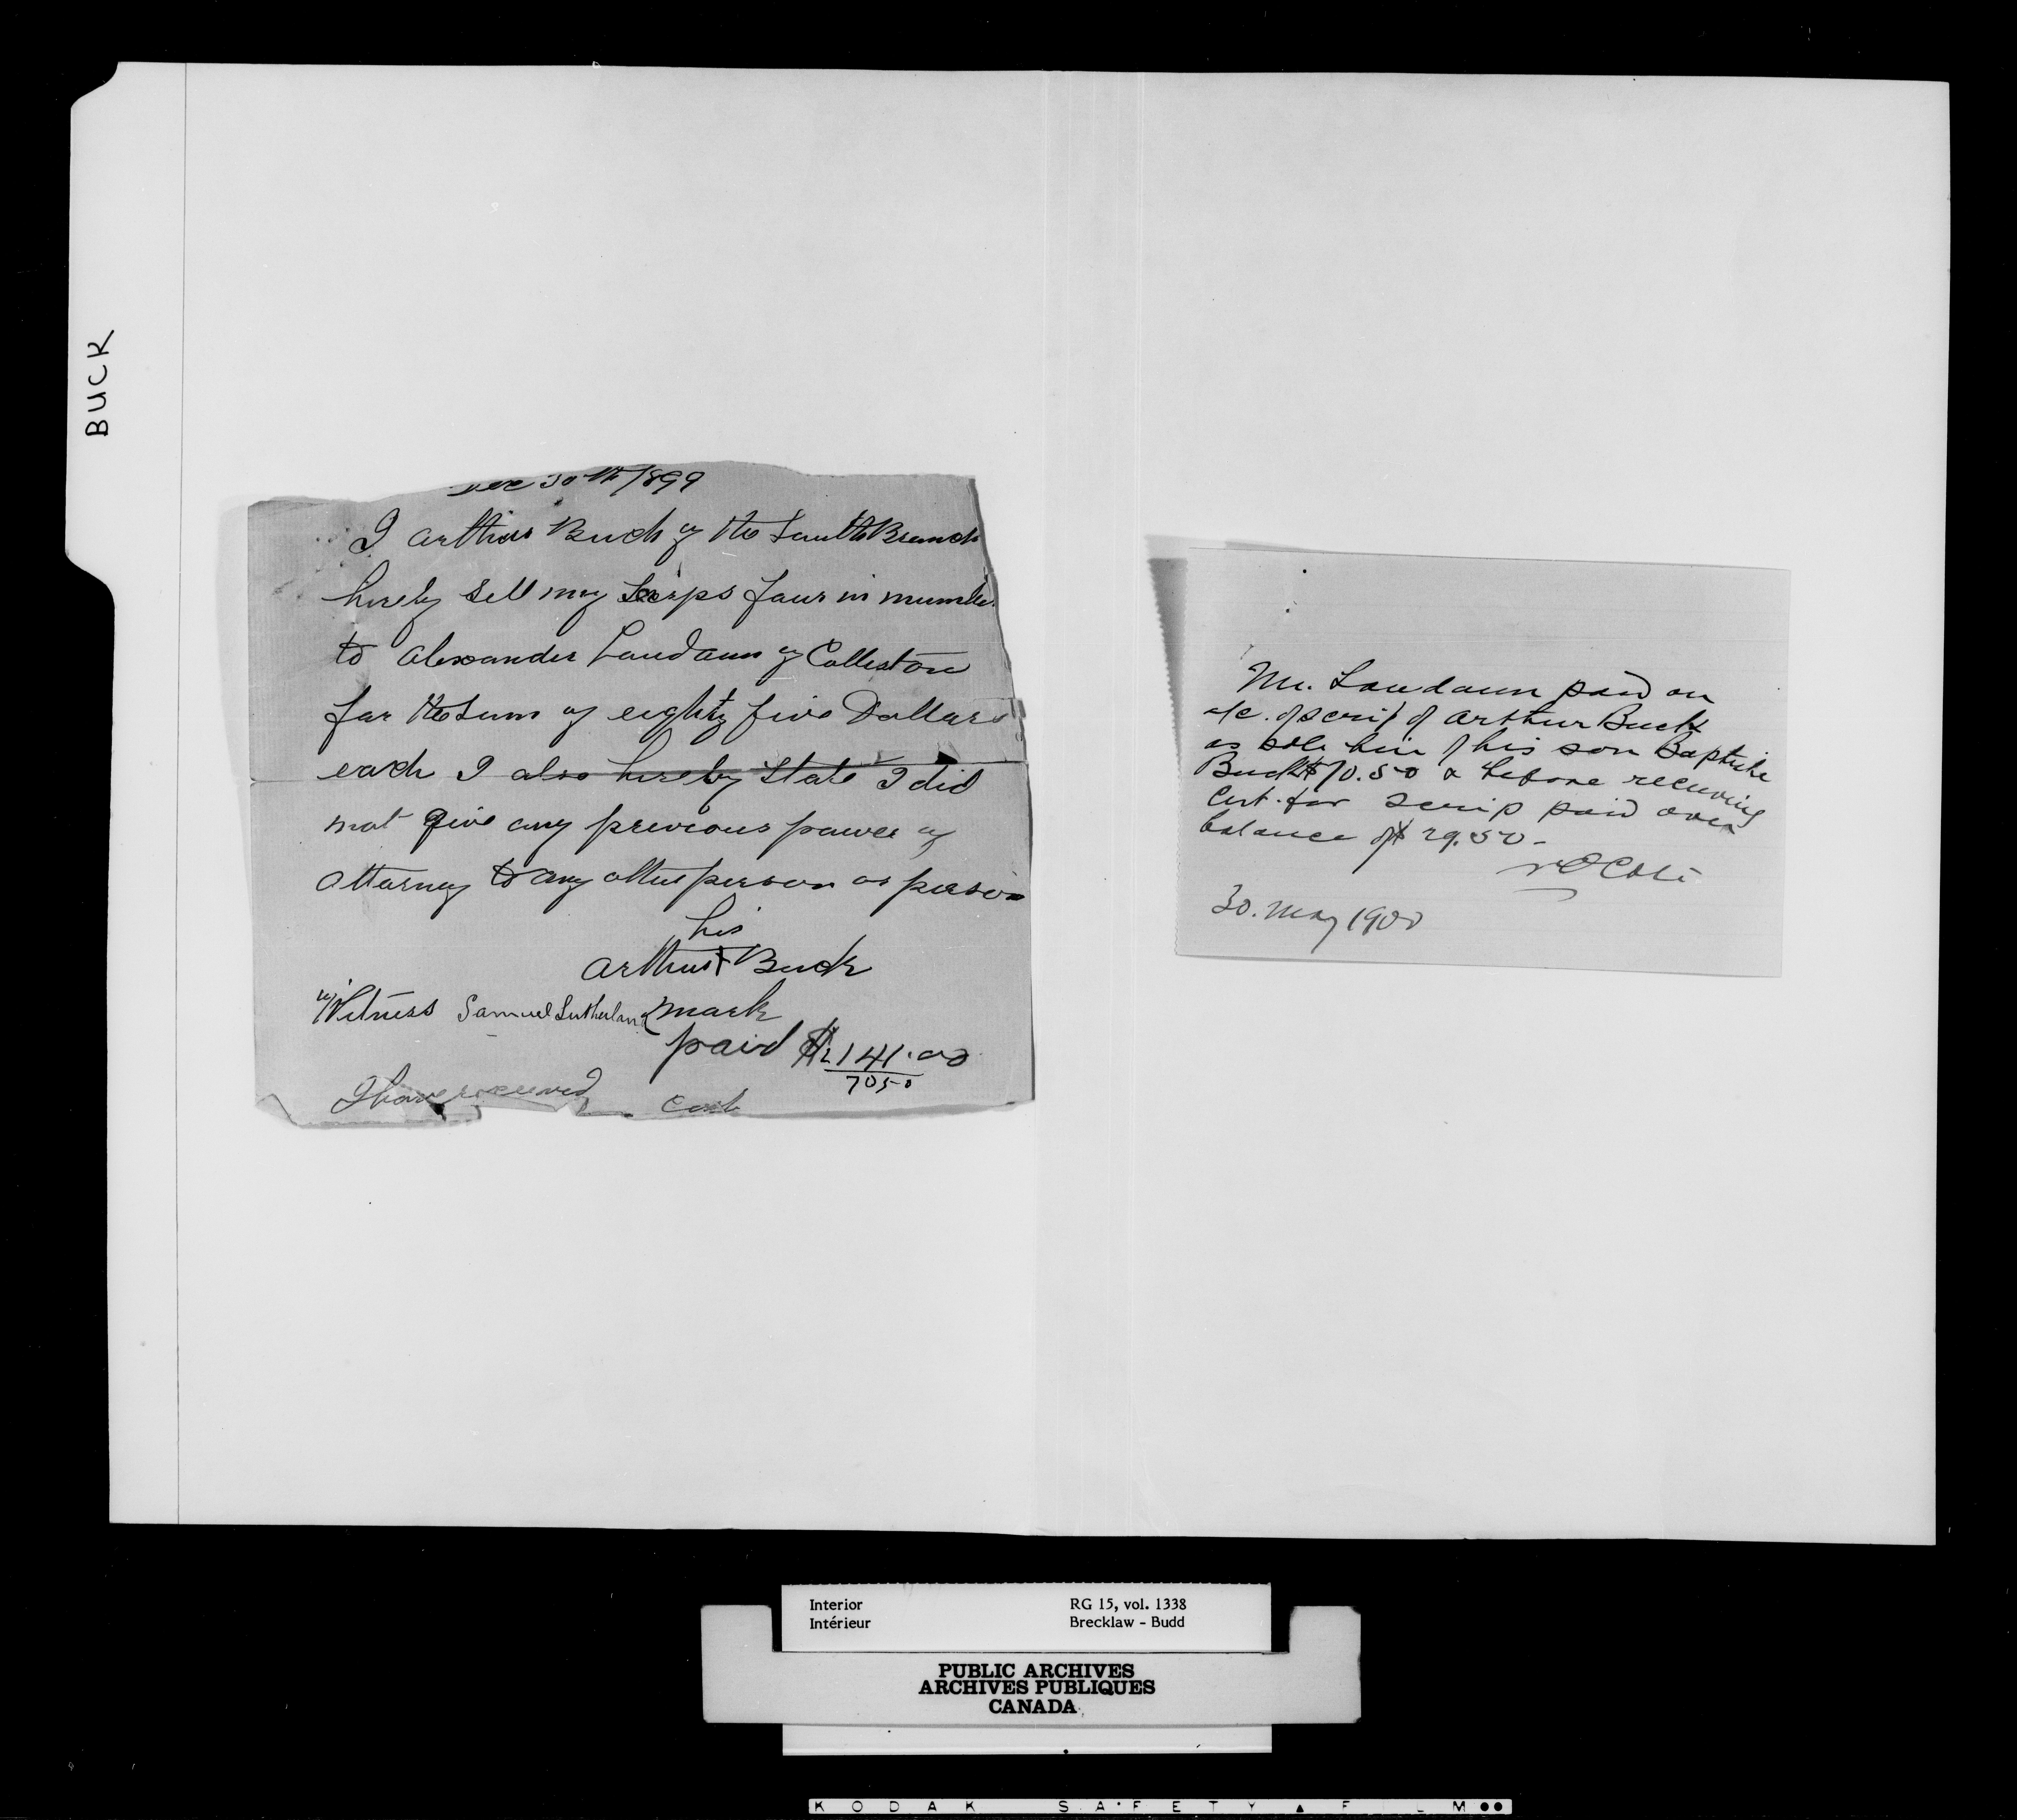 BUCK
Dec 30th/1899
I Arthur Buck of the South Branch
hereby sell my Scrips four in number
to Alexander Laudaun of Colleston
for the Sum of eighty five Dollars
each I also hereby State I did
not give any previous power of
attorney to any other person or person
his
Arthur X Buck
Witness Samuel Sutherland mark
paid $141.00
7050
I have received cash
Mr. Laudaun paid on
a/c. of scrip of Arthur Buck
as sole heir of his son Baptiste
Buck $70.50 & before receiving
Cert. for scrip paid over
balance of $29.50-
30. May 1900
Interior RG 15, vol. 1338
Intérieur Brecklaw - Budd
PUBLIC ARCHIVES
ARCHIVES PUBLIQUES
CANADA
KODAK SAFETY ▲ FILM ●●